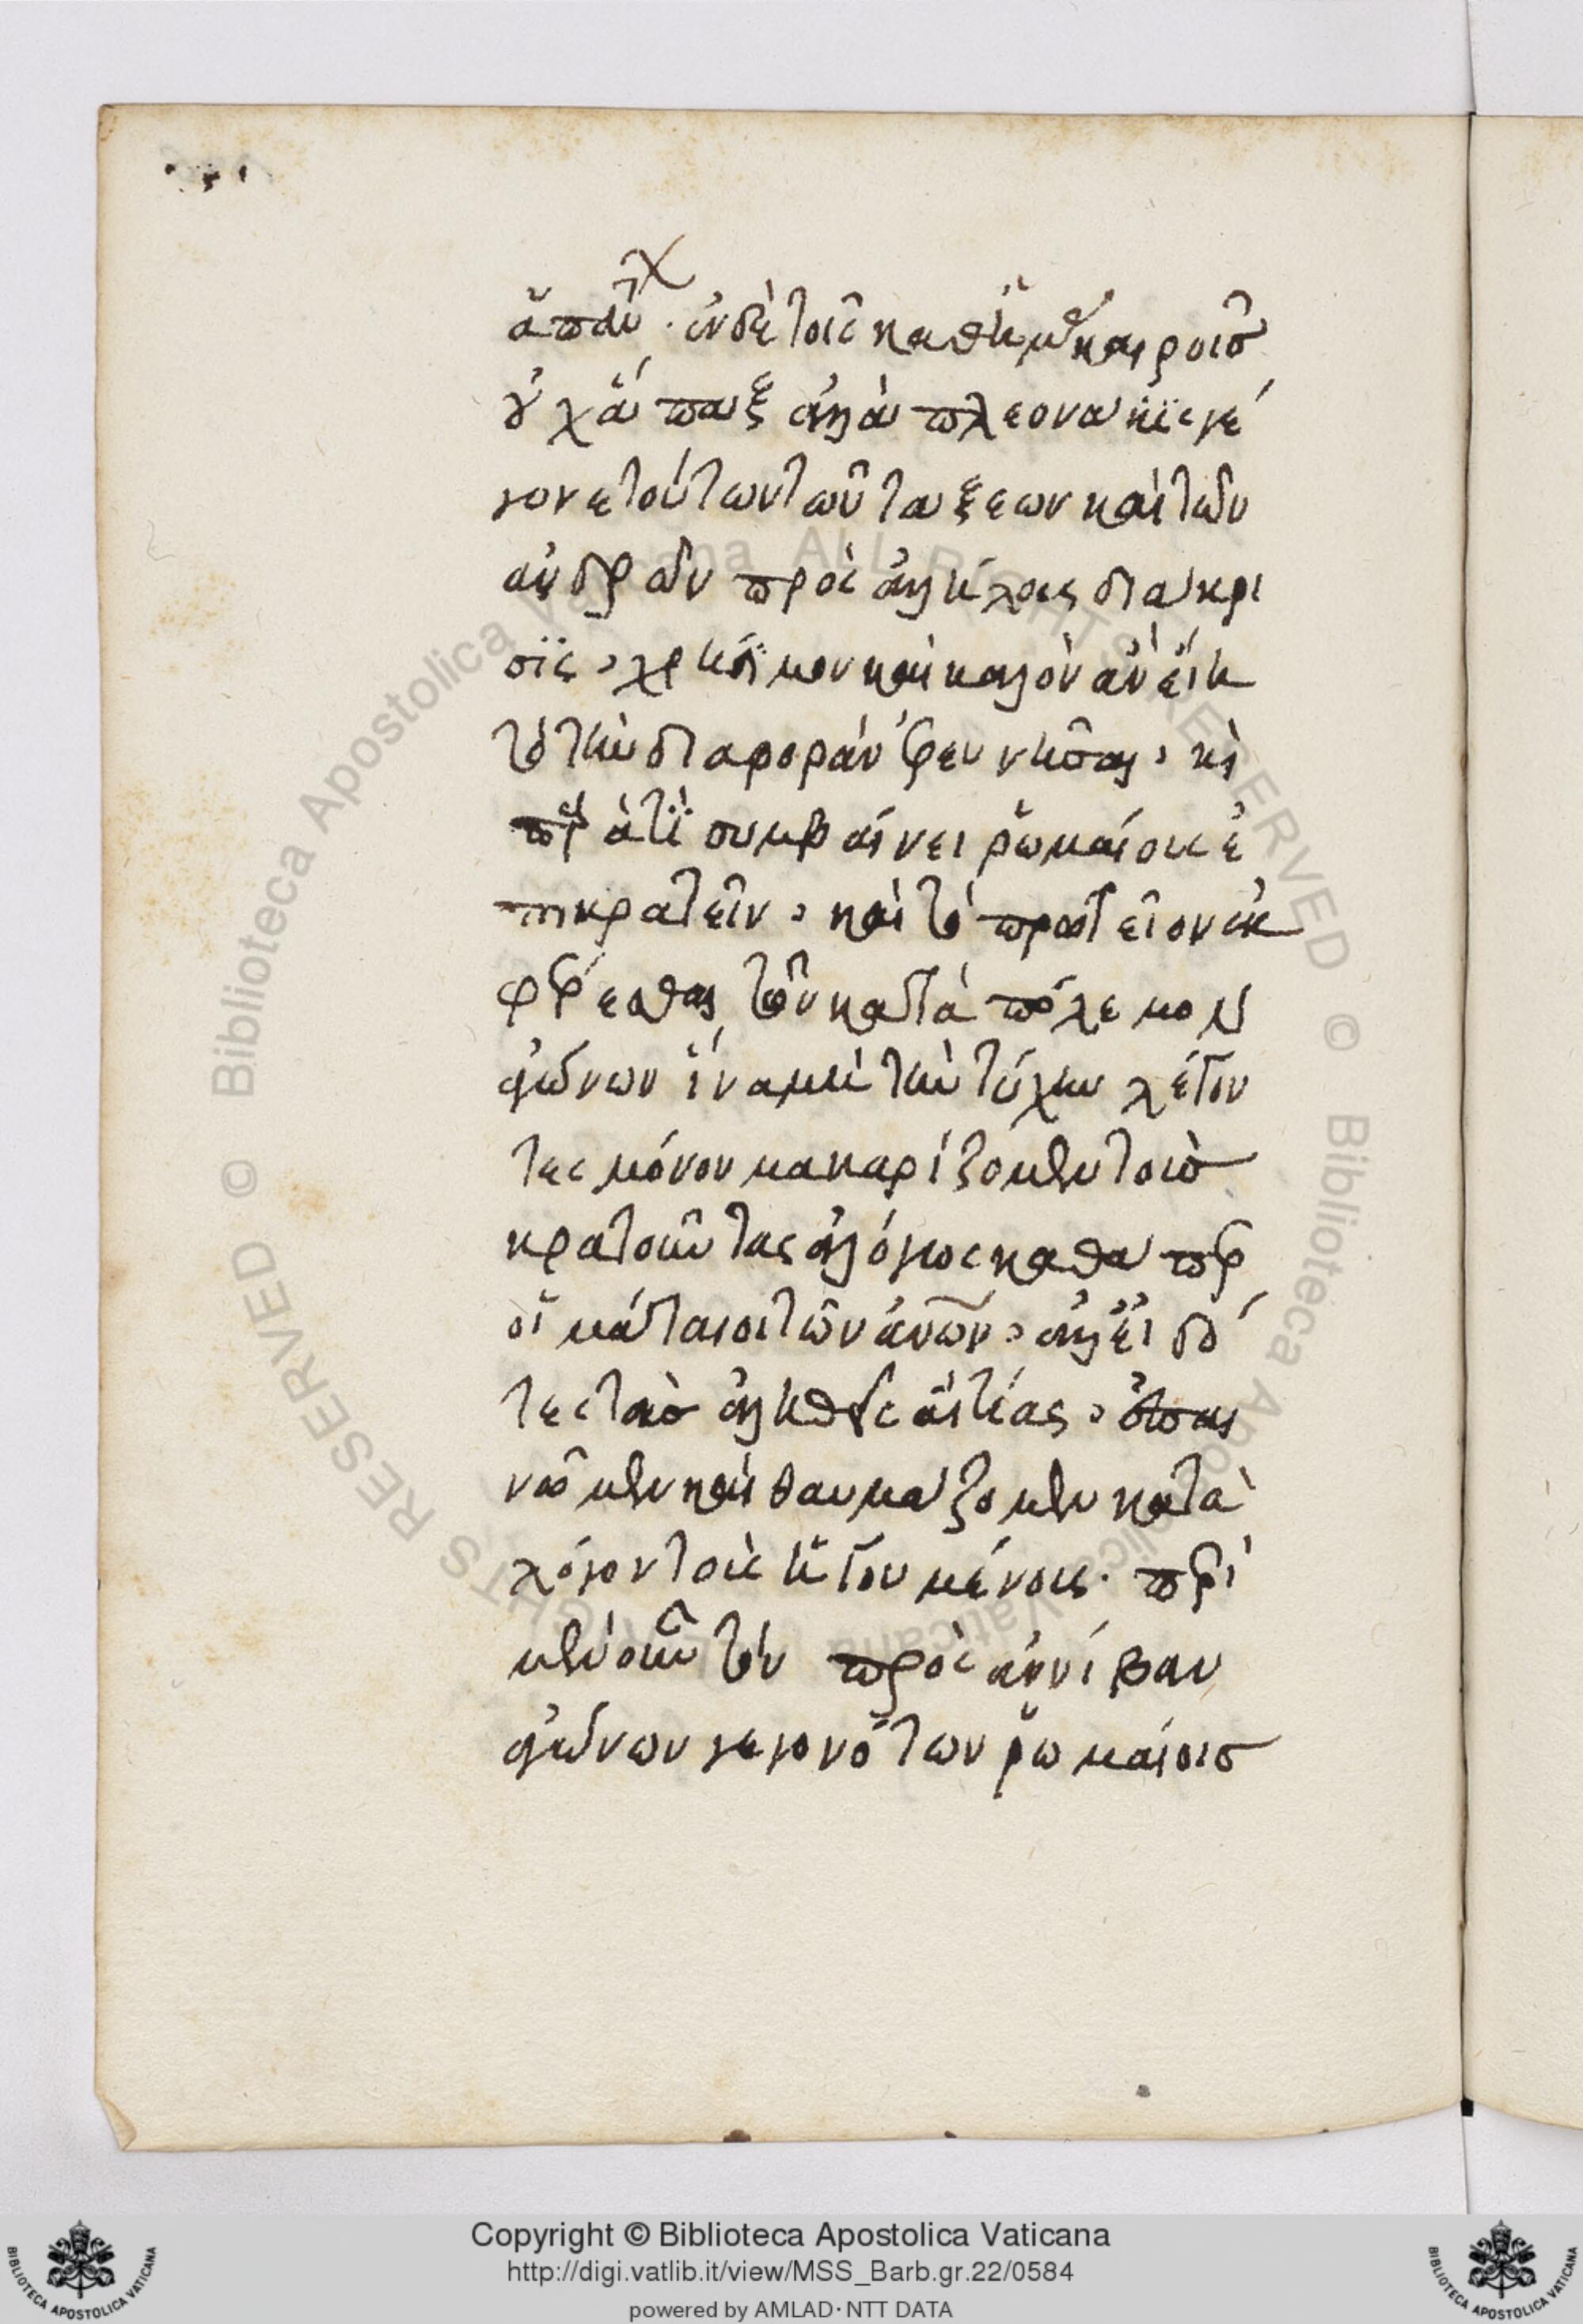 ἅπαν. ἐν δὲ τοῖς καθ' ἡμᾶς καιροῖς
οὐχ ἅπαξ ἀλλὰ πλεονάκϊς γέ
γονε τούτων τῶν τάξεων καὶ τῶν
ἀνδρῶν πρὸς ἀλλήλους διάκρι
σϊς, χρήσϊμον καὶ καλὸν ἂν εἴη
τὸ τὴν διαφορὰν ἐρευνῆσαι, κὶ
παρὰ τί συμβαίνει ῥωμαίους ἐ
πικρατεῖν, καὶ τὸ πρωτεῖον ἐκ
φέρεσθαι τῶν κατὰ πόλεμον
ἀγώνων ἵνα μὴ τὴν τύχην λέγον
τες μόνον μακαρίζομεν τοὺς
κρατοῦντας ἀλόγως καθάπερ
οἱ μάταιοι τῶν ἀνων, ἀλλ' εἰδό
τες τὰς ἀληθεῖς αἰτίας, ἐπαι
νῶμεν καὶ θαυμάζομεν κατὰ
λόγον τοὺς ἡγουμένους. περὶ
μὲν οὖν τῶν πρὸς ἀννίβαν
ἀγώνων γεγονότων ῥωμαίοις
Copyright © Biblioteca Apostolica Vaticana
http://digi.vatlib.it/view/MSS_Barb.gr.22/0584
powered by AMLAD·NTT DATA